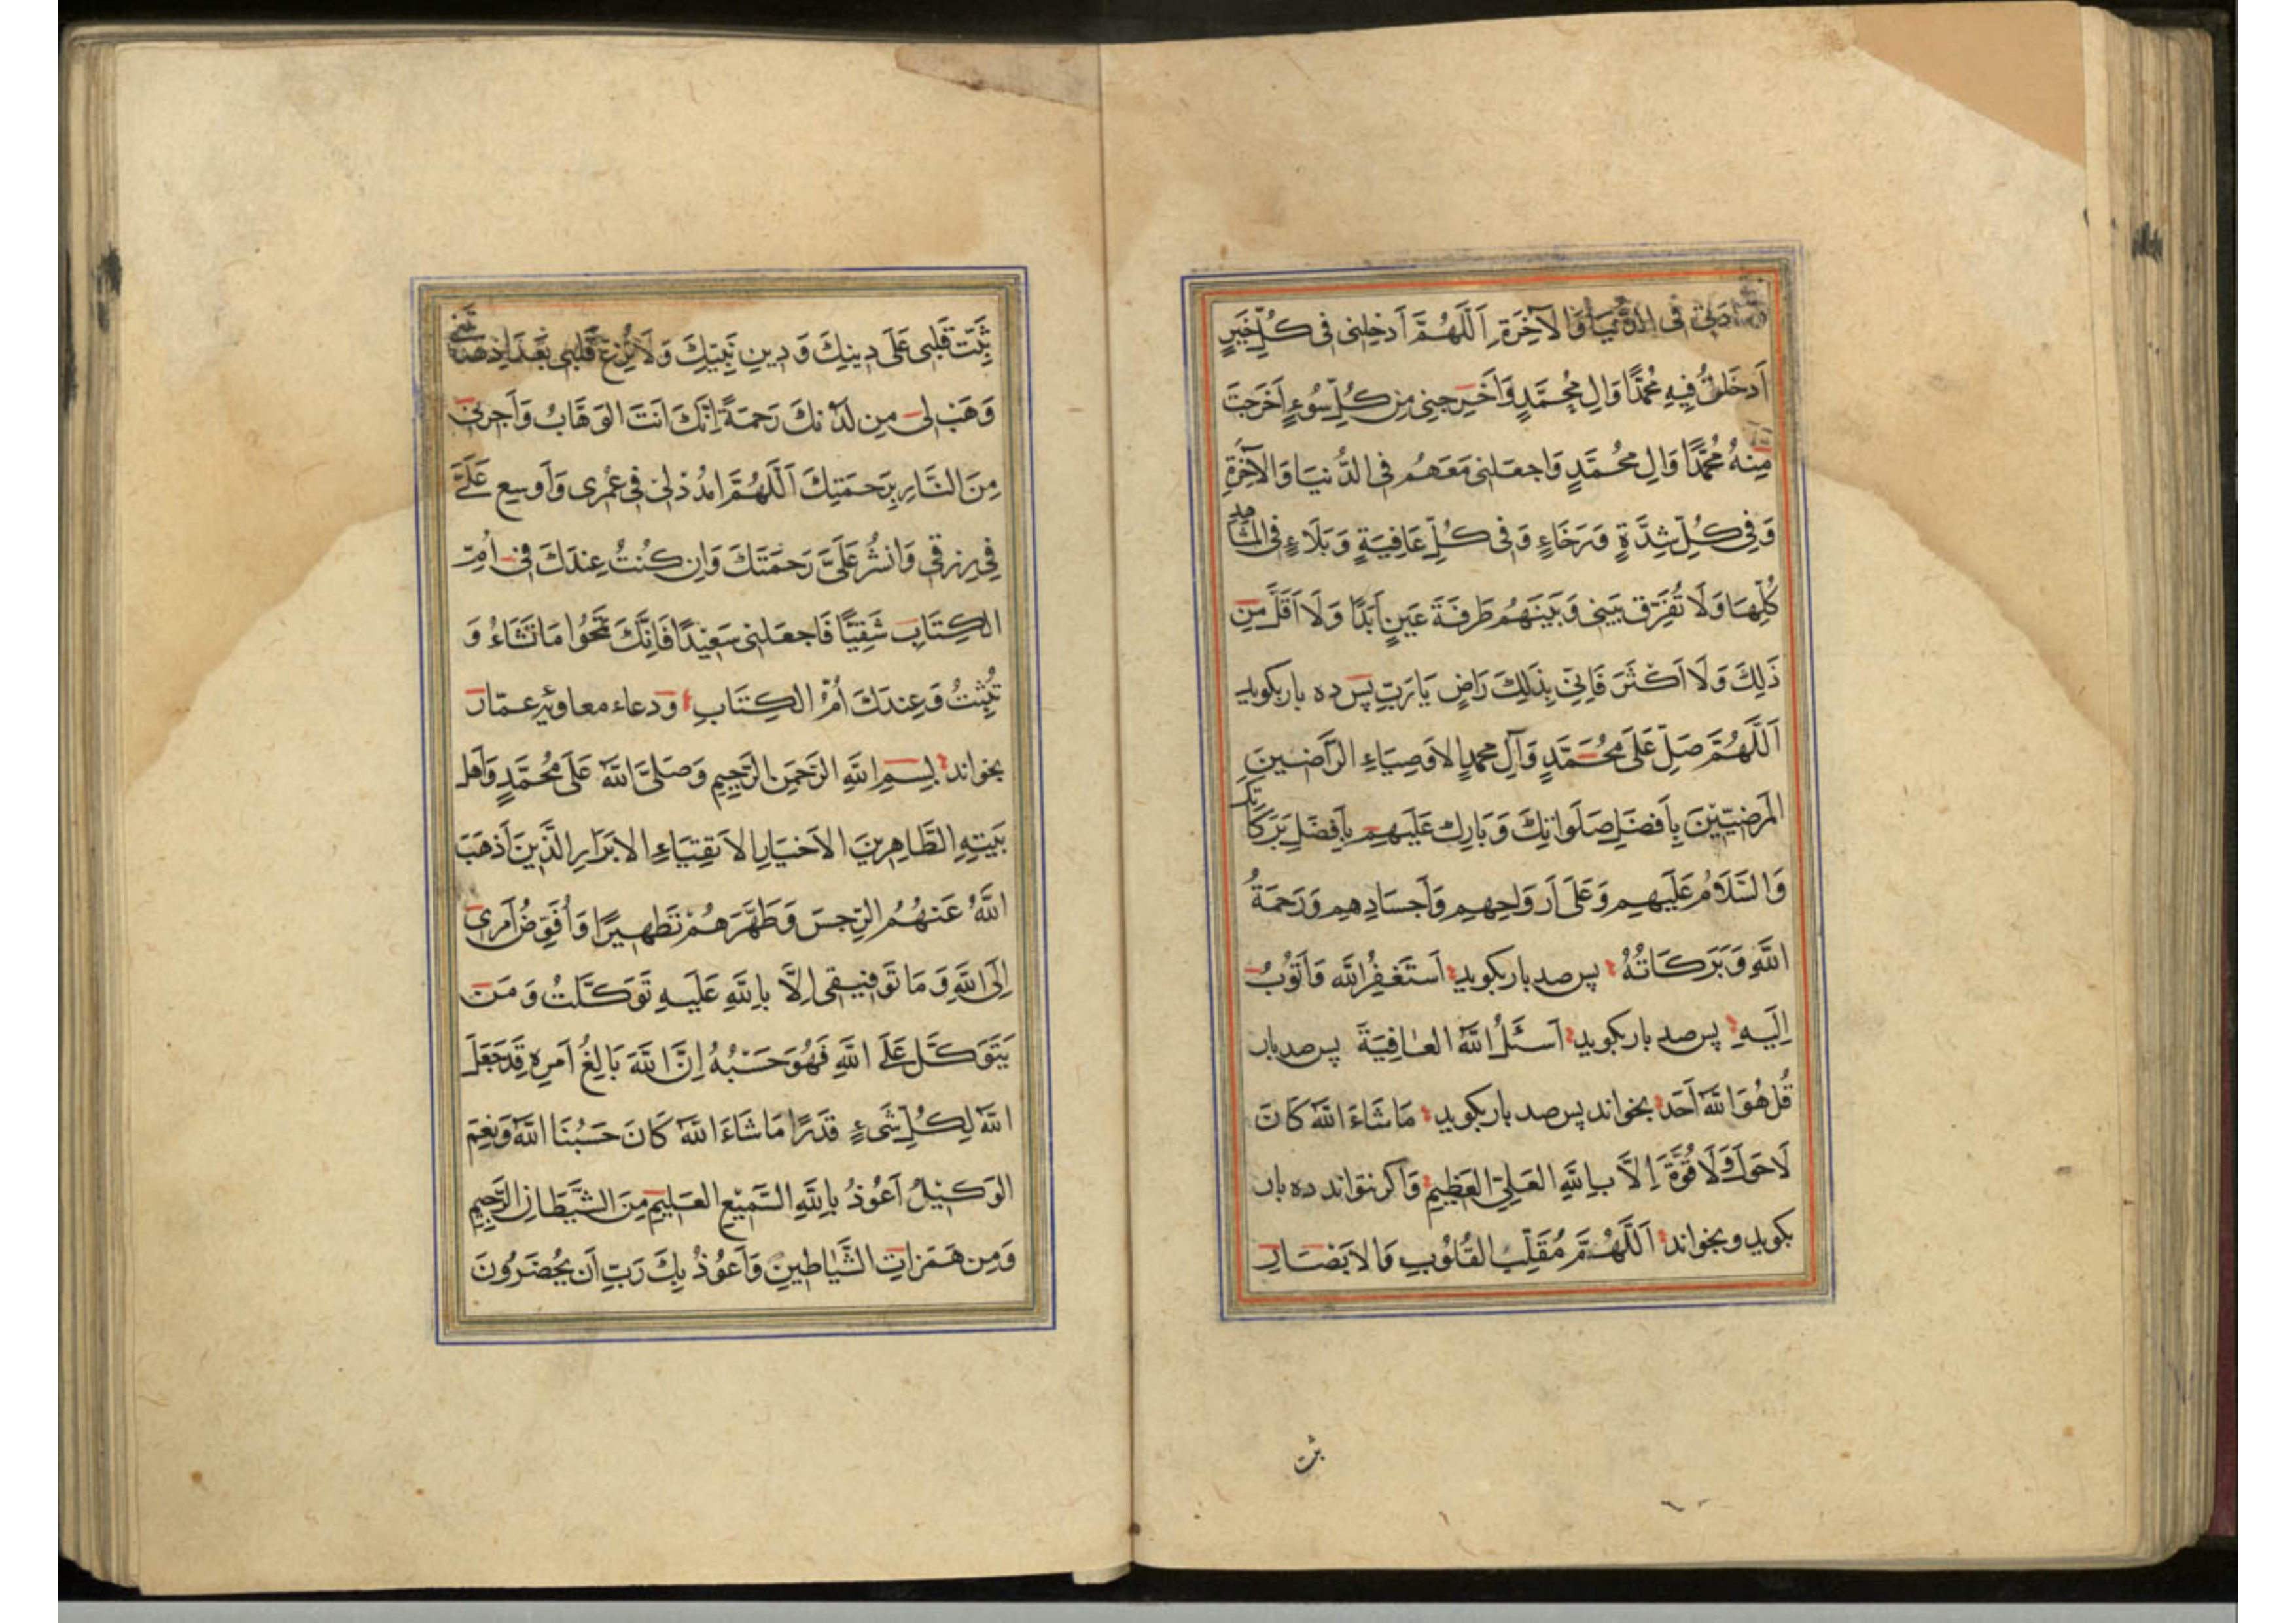 فِى الدُّنْيَا وَالْآخِرَةِ اَللّٰهُمَّ اَدْخِلْنِى فِى كُلِّ خَيْرٍ
اَدْخَلْتَ فِيهِ مُحَمَّدًا وَالَ مُحَمَّدٍ وَاَخْرِجْنِى مِنْ كُلِّ سُوءٍ اَخْرَجْتَ
مِنْهُ مُحَمَّدًا وَالَ مُحَمَّدٍ وَاجْعَلْنِى مَعَهُمْ فِى الدُّنْيَا وَالْآخِرَةِ
وَفِى كُلِّ شِدَّةٍ وَرَخَاءٍ وَفِى كُلِّ عَافِيَةٍ وَبَلَاءٍ فِى الْمَشَاهِدِ
كُلِّهَا وَلَا تُفَرِّقْ بَيْنِى وَبَيْنَهُمْ طَرْفَةَ عَيْنٍ اَبَدًا وَلَا اَقَلَّ مِنْ
ذَلِكَ وَلَا اَكْثَرَ فَاِنِّى بِذَلِكَ رَاضٍ يَا رَبِّ پس ده بار بكويد
اَللّٰهُمَّ صَلِّ عَلَى مُحَمَّدٍ وَآلِ مُحَمَّدٍ الاَوْصِيَاءِ الرَّاضِينَ
الْمَرْضِيِّينَ بِاَفْضَلِ صَلَوَاتِكَ وَبَارِكْ عَلَيْهِمْ بِاَفْضَلِ بَرَكَاتِكَ
وَالسَّلَامُ عَلَيْهِمْ وَعَلَى اَرْوَاحِهِمْ وَاَجْسَادِهِمْ وَرَحْمَةُ
اللّٰهِ وَبَرَكَاتُهُ پس صد بار بكويد اَسْتَغْفِرُ اللّٰه وَاَتُوبُ
اِلَيْهِ پس صد بار بكويد اَسْئَلُ اللّٰهَ العَافِيَةَ پس صد بار
قُلْ هُوَ اللّٰهُ اَحَد بخواند پس صد بار بكويد مَا شَاءَ اللّٰهُ كَانَ
لَاحَوْلَ وَلَا قُوَّةَ اِلَّا بِاللّٰهِ العَلِىِّ العَظِيمِ وَاكر نتواند ده بار
بكويد وبخواند اَللّٰهُمَّ مُقَلِّبَ القُلُوبِ وَالاَبْصَارِ
ثبت
ثَبِّتْ قَلْبِى عَلَى دِينِكَ وَدِينِ نَبِيِّكَ وَلَا تُزِغْ قَلْبِى بَعْدَ اِذْ هَدَيْتَنِى
وَهَبْ لِى مِنْ لَدُنْكَ رَحْمَةً اِنَّكَ اَنْتَ الوَهَّابُ وَاَجِرْنِى
مِنَ النَّارِ بِرَحْمَتِكَ اَللّٰهُمَّ امْدُدْ لِى فِى عُمْرِى وَاَوْسِعْ عَلَىَّ
فِى رِزْقِى وَانْشُرْ عَلَىَّ رَحْمَتَكَ وَاِنْ كُنْتُ عِنْدَكَ فِى اُمِّ
الكِتَابِ شَقِيًّا فَاجْعَلْنِى سَعِيْدًا فَاِنَّكَ تَمْحُوا مَا تَشَاءُ وَ
تُثْبِتُ وَعِنْدَكَ اُمُّ الكِتَابِ ودعاء معاوية عمّار
بخواند بِسْمِ اللّٰهِ الرَّحْمَنِ الرَّحِيمِ وَصَلَّى اللّٰهُ عَلَى مُحَمَّدٍ وَاَهْلِ
بَيْتِهِ الطَّاهِرِينَ الاَخْيَارِ الاَتْقِيَاءِ الاَبْرَارِ الَّذِينَ اَذْهَبَ
اللّٰهُ عَنْهُمُ الرِّجْسَ وَطَهَّرَهُمْ تَطْهِيرًا وَاُفَوِّضُ اَمْرِى
اِلَى اللّٰهِ وَمَا تَوْفِيقِى اِلَّا بِاللّٰهِ عَلَيْهِ تَوَكَّلْتُ وَمَنْ
يَتَوَكَّلْ عَلَى اللّٰهِ فَهُوَ حَسْبُهُ اِنَّ اللّٰهَ بَالِغُ اَمْرِهِ قَدْ جَعَلَ
اللّٰهُ لِكُلِّ شَىْءٍ قَدْرًا مَا شَاءَ اللّٰهُ كَانَ حَسْبُنَا اللّٰهُ وَنِعْمَ
الوَكِيْلُ اَعُوْذُ بِاللّٰهِ السَّمِيْعِ العَلِيمِ مِنَ الشَّيْطَانِ الرَّجِيمِ
وَمِنْ هَمَزَاتِ الشَّيَاطِينِ وَاَعُوْذُ بِكَ رَبِّ اَنْ يَحْضُرُونَ